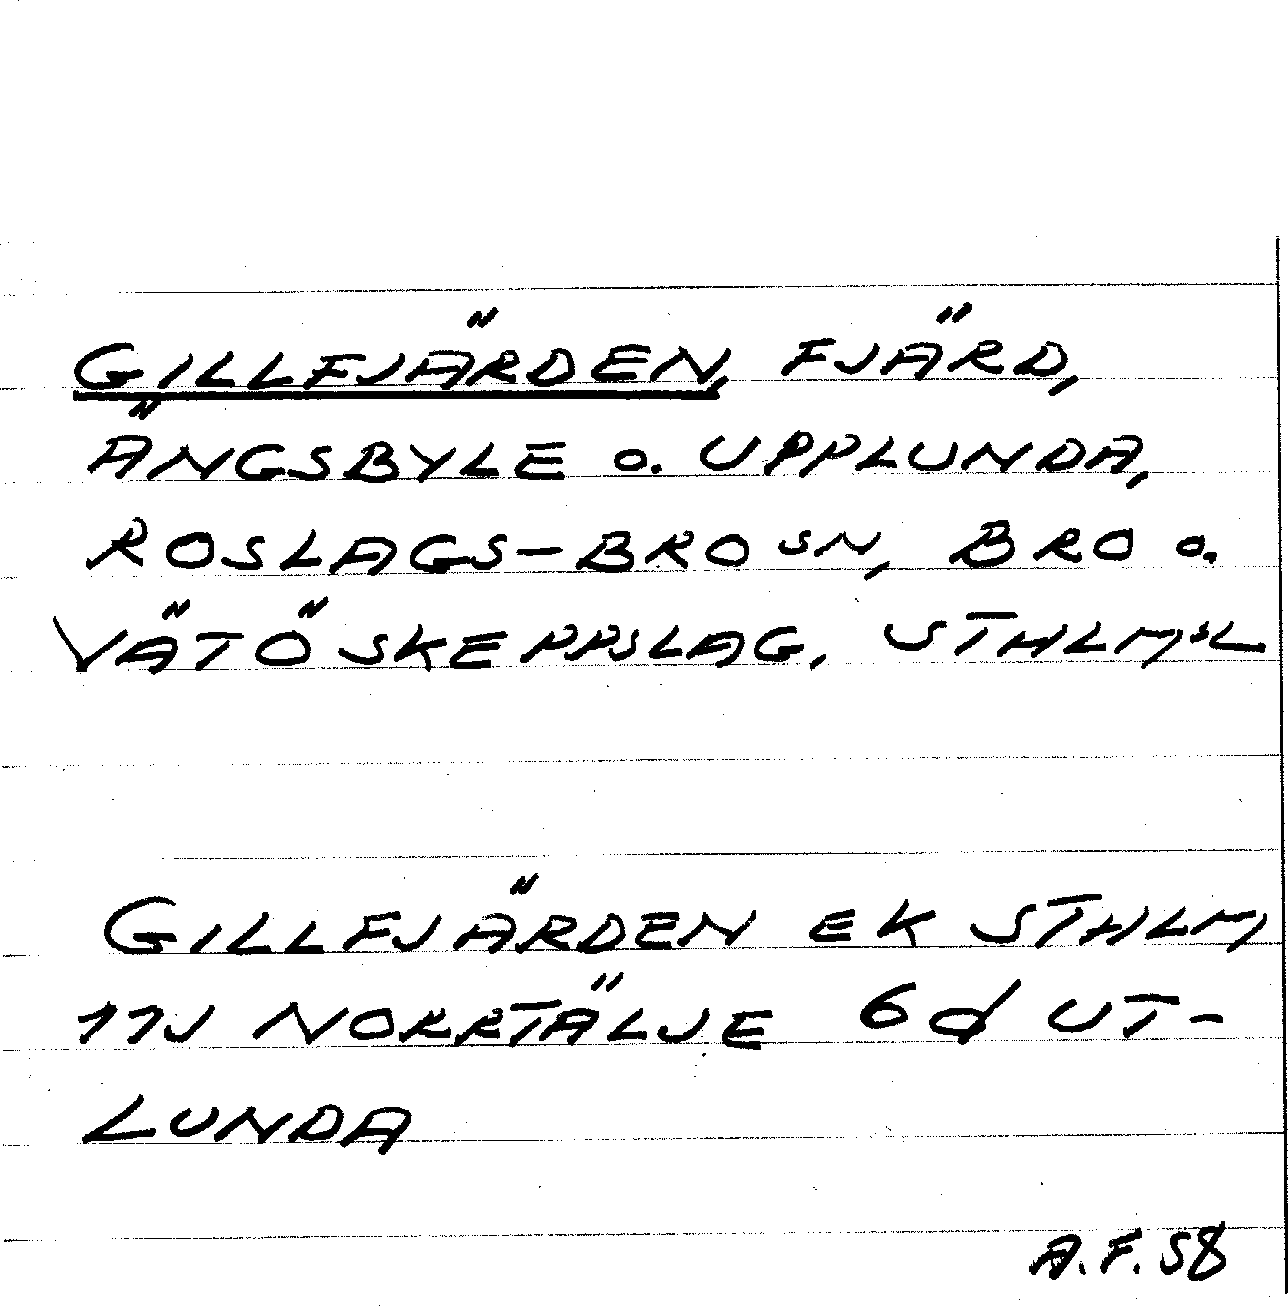 GILLFJÄRDEN, FJÄRD,
ÄNGSBYLE o. UPPLUNDA,
ROSLAGS-BRO SN, BRO o.
VÄTÖ SKEPPSLAG, STHLMSL
GILLFJÄRDEN EK STHLM
11J NORRTÄLJE 6d UT-
LUNDA
A.F. 58